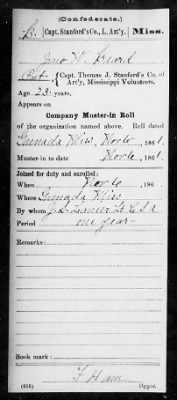 (Confederate.)
B. Capt. Stanford's Co., L. Art'y. Miss.
Jno W. Beard
Pvt., Capt. Thomas J. Stanford's Co. of Art'y, Mississippi Volunteers.
Age 23 years.
Appears on
Company Muster-in Roll
of the organization named above. Roll dated
Grenada Miss, Nov 6, 1861.
Muster-in to date Nov 6, 1861.
Joined for duty and enrolled:
When Nov 6, 186
Where Grenada Miss
By whom
Period one year
Remarks:
Book mark:
F Ham
(656) Copyist.